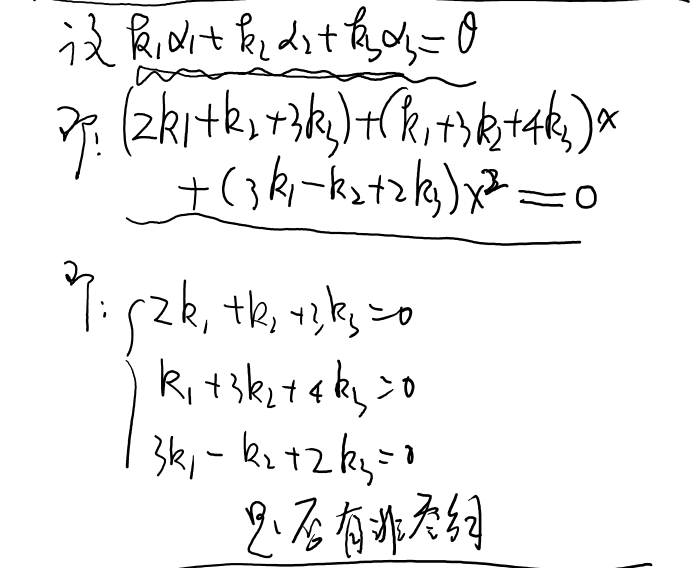 设 k₁α₁+k₂α₂+k₃α₃=θ
即: (2k₁+k₂+3k₃)+(k₁+3k₂+4k₃)x
+(3k₁-k₂+2k₃)x²=0
即: {2k₁+k₂+3k₃=0
k₁+3k₂+4k₃=0
3k₁-k₂+2k₃=0
是否有非零解